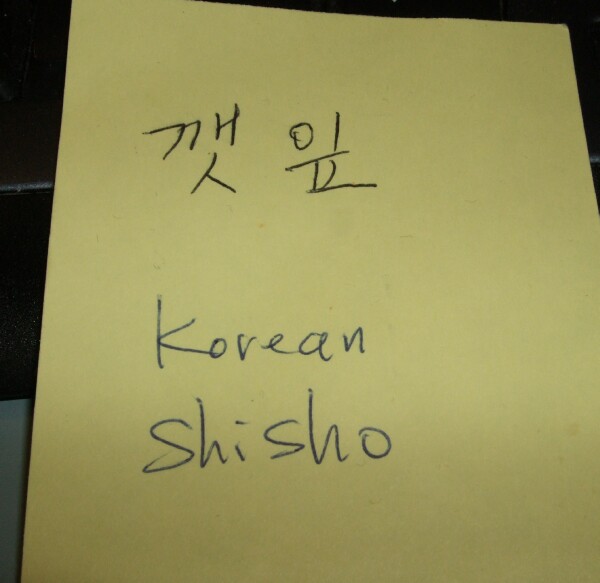 깻잎
Korean
Shisho